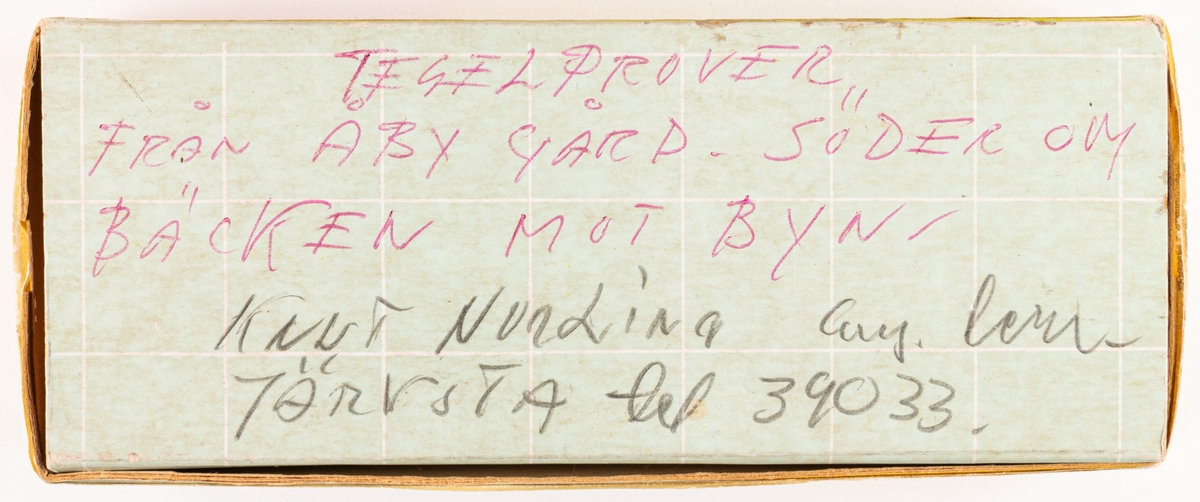 TEGELPROVER
FRÅN ÅBY GÅRD. SÖDER OM
BÄCKEN MOT BYN
KNUT NORLING
JÄRVSTA tel 39033.